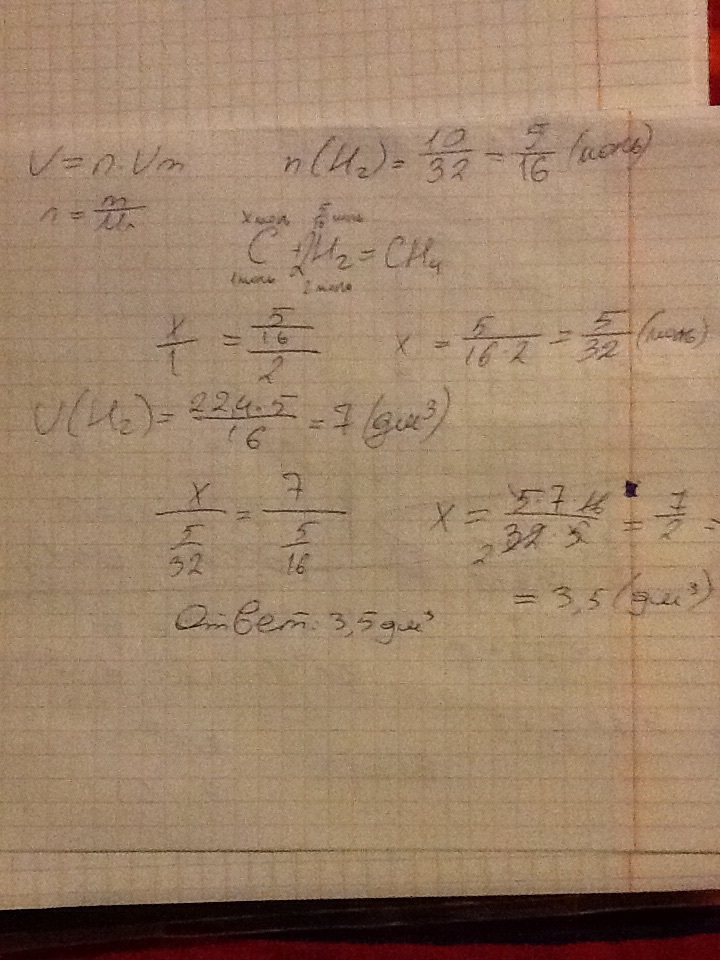 V = n·Vm    n(H₂) = 10/32 = 5/16 (моль)
n = m/M
x моль  5/16 моль
C + 2H₂ = CH₄
1 моль  2 моль
x/1 = (5/16)/2    x = 5/(16·2) = 5/32 (моль)
V(H₂) = 22,4·5/16 = 7 (дм³)
x/(5/32) = 7/(5/16)    x = 5·7·16/(32·5) = 7/2 =
2
= 3,5 (дм³)
Ответ: 3,5 дм³